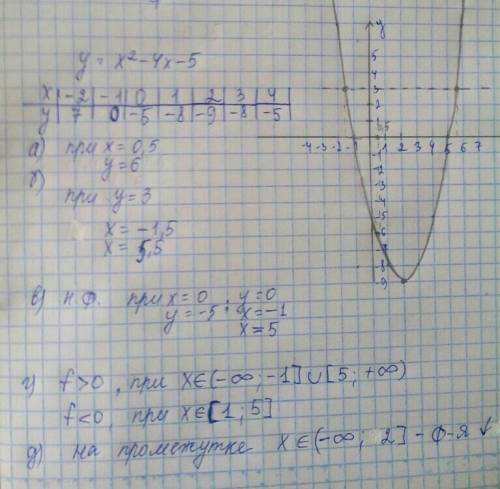 y = x²-4x-5
x | -2 | -1 | 0 | 1 | 2 | 3 | 4
y | 7 | 0 | -5 | -8 | -9 | -8 | -5
а) при x = 0,5
y = 6
б)
при y = 3
x = -1,5
x = 5,5
в) н.ф. при x = 0 ; y = 0
y = -5 x = -1
x = 5
г) f>0, при x∈(-∞; -1]∪[5; +∞)
f<0, при x∈[1; 5]
д) на промежутке x∈(-∞; 2] - ф-я ↓
y
5
4
3
2
1
0,5
-4 -3 -2 -1 1 2 3 4 5 6 7
-8
-9